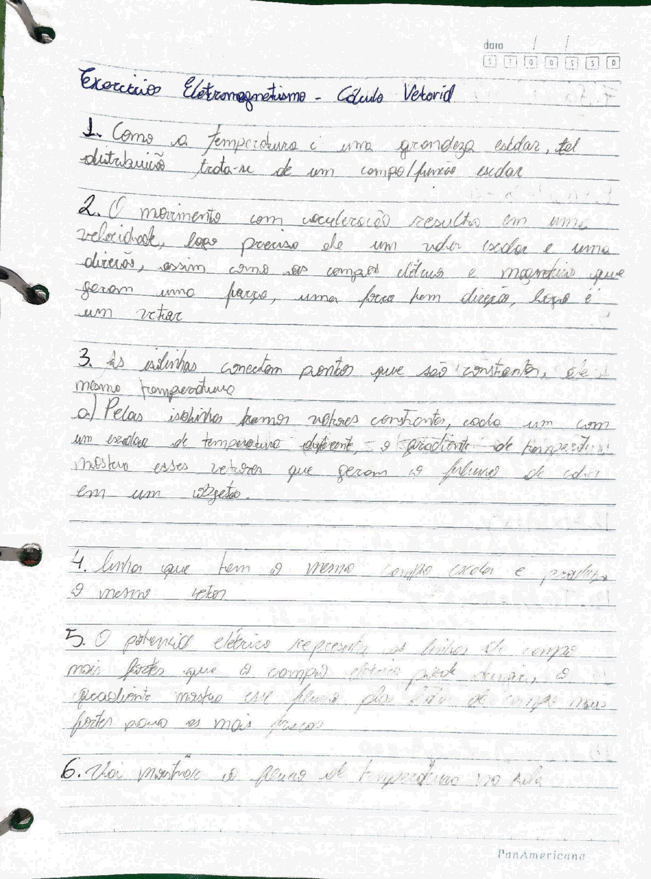 data / /
S T Q Q S S D
Exercícios Eletromagnetismo - Cálculo Vetorial
1. Como a temperatura é uma grandeza escalar, tal
distribuição trata-se de um campo/função escalar
2. O movimento com aceleração resulta em uma
velocidade, logo preciso de um valor escalar e uma
direção, assim como os campos elétrico e magnético que
geram uma força, uma força tem direção, logo é
um vetor
3. As isolinhas conectam pontos que são constantes, de
mesmo temperatura
a) Pelas isolinhas temos vetores constantes, cada um com
um escalar de temperatura diferente, o gradiente de temperatura
mostra esses vetores que geram o fluxo de calor
em um objeto.
4. linhas que tem o mesmo campo escalar e
o mesmo vetor
5. O potencial elétrico representa as linhas de campo
mais fortes que o campo elétrico pode, o
gradiente mostra esse fluxo das linhas de campo mais
fortes para as mais fracas
6. Vai mostrar o fluxo de temperatura na sala
PanAmericana